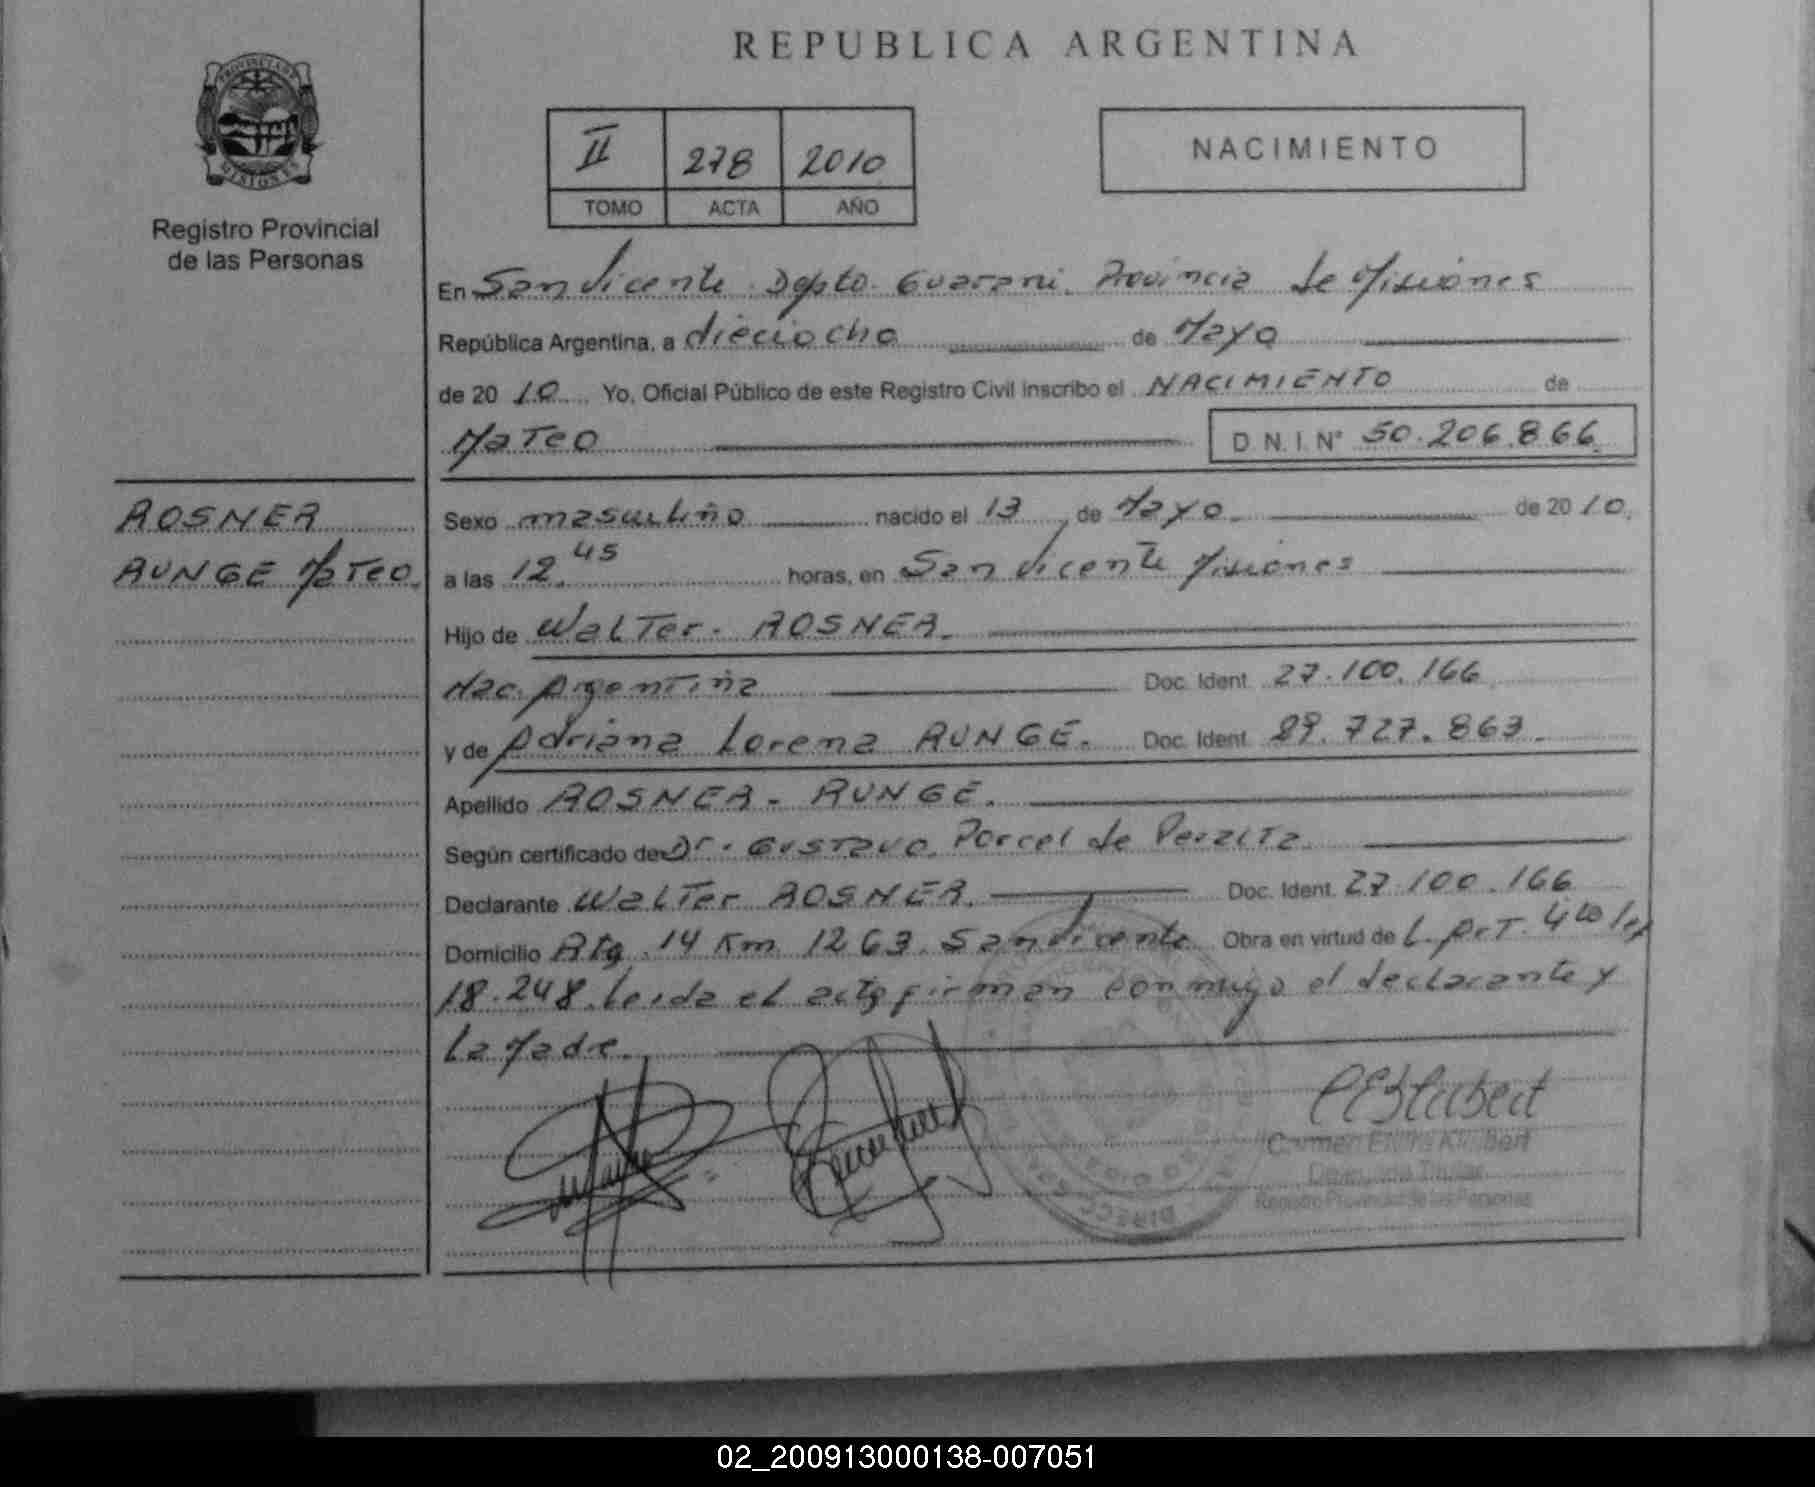 REPUBLICA ARGENTINA
PROVINCIA DE
MISIONES
Registro Provincial
de las Personas
II 278 2010
TOMO ACTA AÑO
NACIMIENTO
En San Vicente Dpto. Guarani. Provincia de Misiones
República Argentina, a dieciocho de Mayo
de 2010 Yo, Oficial Público de este Registro Civil inscribo el NACIMIENTO de
Mateo D.N.I. Nº 50.206.866
ROSNER
RUNGE Mateo.
Sexo masculino nacido el 13 de Mayo de 2010.
a las 12.45 horas, en San Vicente Misiones
Hijo de Walter. ROSNER.
Nac. Argentina Doc. Ident. 27.100.166
y de Adriana Lorena RUNGE. Doc. Ident. 29.727.863.
Apellido ROSNER - RUNGE.
Según certificado de Dr. Gustavo. Porcel de Peralta
Declarante Walter ROSNER. Doc. Ident. 27.100.166
Domicilio Rta. 14 Km 1263. San Vicente Obra en virtud de L. Art. 4to ley
18.248. Leida el acta firman conmigo el declarante y
La Madre.
Carmen Klubert
Titular
Registro Provincial de las Personas
02_200913000138-007051